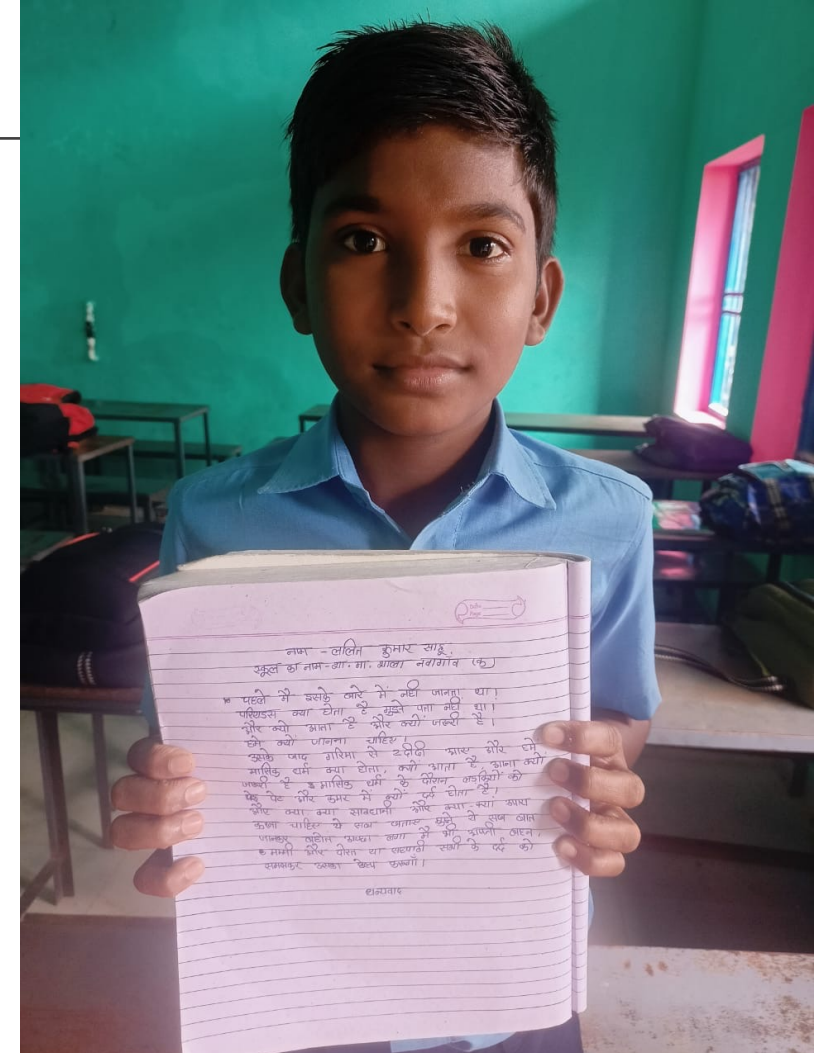 Date
Page
नाम - ललित कुमार साहू
स्कूल का नाम - शा. मा. शाला नवागाँव (कृ)
पहले मै इसके बारे में नही जानता था।
परियडस क्या होता है मुझे पता नही था।
और क्यो आता है और क्यों जरुरी है।
हमे क्यों जानना चाहिए।
उसके बाद गरिमा से दीदी आए और हमे
मासिक धर्म क्या होता, क्यों आता है, आना क्यो
जरूरी है मासिक धर्म के दौरान लडकियों को
पेट और कमर में क्यों दर्द होता है।
और क्या क्या सावधानी और क्या क्या उपाय
करना चाहिए ये सब बताए मुझे ये सब बात
जानकर बहोत अच्छा लगा मै भी अपनी बहन,
मम्मी और दोस्त या सहपाठी साथी के दर्द को
समझकर उसका हेल्प करूगाँ।
धन्यवाद